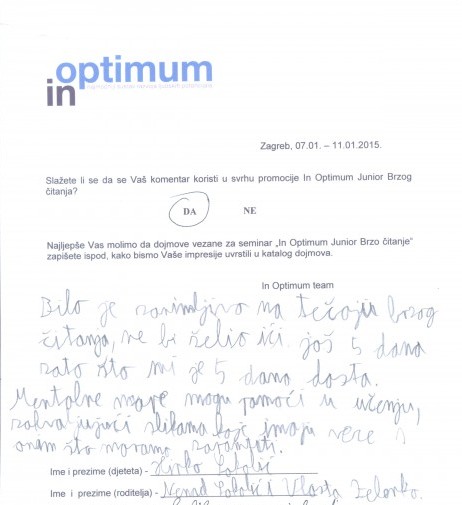 optimum
in
Zagreb, 07.01. – 11.01.2015.
Slažete li se da se Vaš komentar koristi u svrhu promocije In Optimum Junior Brzog
čitanja?
DA NE
Najljepše Vas molimo da dojmove vezane za seminar „In Optimum Junior Brzo čitanje“
zapišete ispod, kako bismo Vaše impresije uvrstili u katalog dojmova.
In Optimum team
Bilo je zanimljivo na tečaju brzog
čitanja, ne bi želio ići još 5 dana
zato što mi je 5 dana dosta.
Mentalne mape mogu pomoći u učenju,
zahvaljujući slikama koje imaju veze s
onim što moramo zapamtiti.
Ime i prezime (djeteta) -
Ime i prezime (roditelja) - Nenad i Vlasta Zelenko